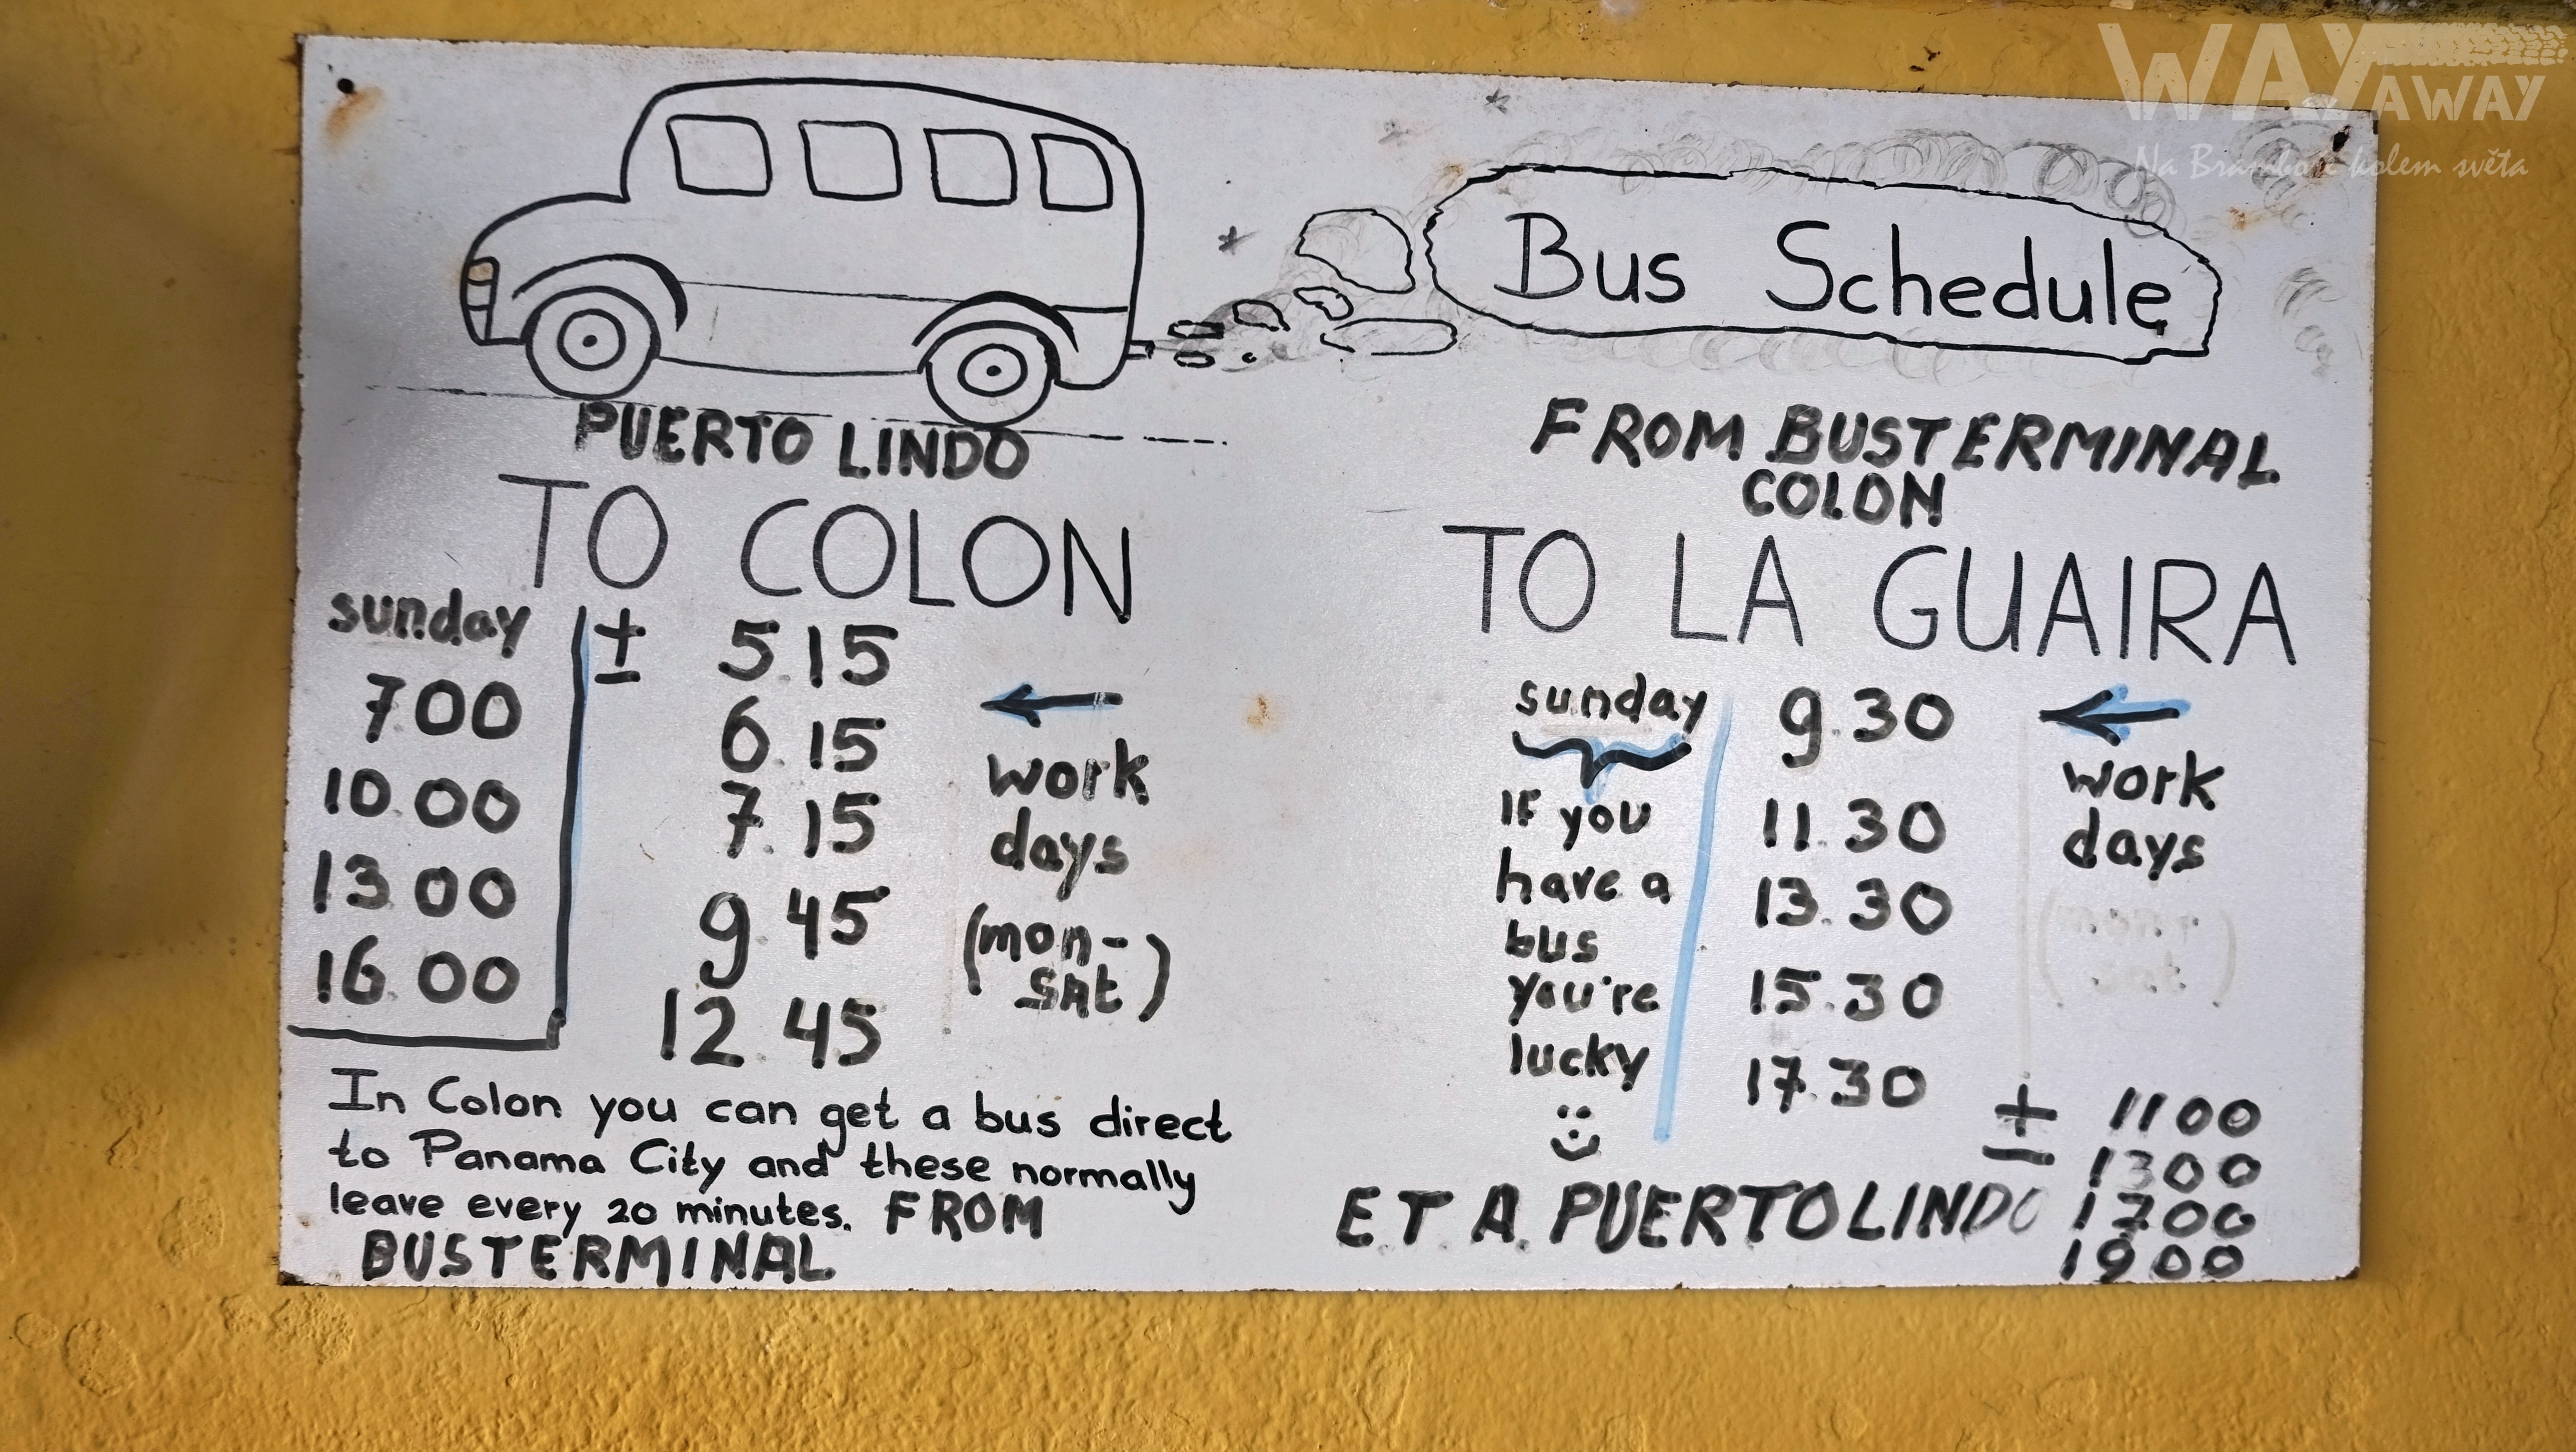 WAY
AWAY
Na Bramboře kolem světa
Bus Schedule
PUERTO LINDO
TO COLON
sunday
7.00
10.00
13.00
16.00
± 5.15
6.15
7.15
9.45
12.45
work
days
(mon-
sat)
In Colon you can get a bus direct
to Panama City and these normally
leave every 20 minutes. FROM
BUSTERMINAL
FROM BUSTERMINAL
COLON
TO LA GUAIRA
sunday
IF you
have a
bus
you're
lucky
9.30
11.30
13.30
15.30
17.30
work
days
E.T.A. PUERTO LINDO
± 1100
1300
1700
1900